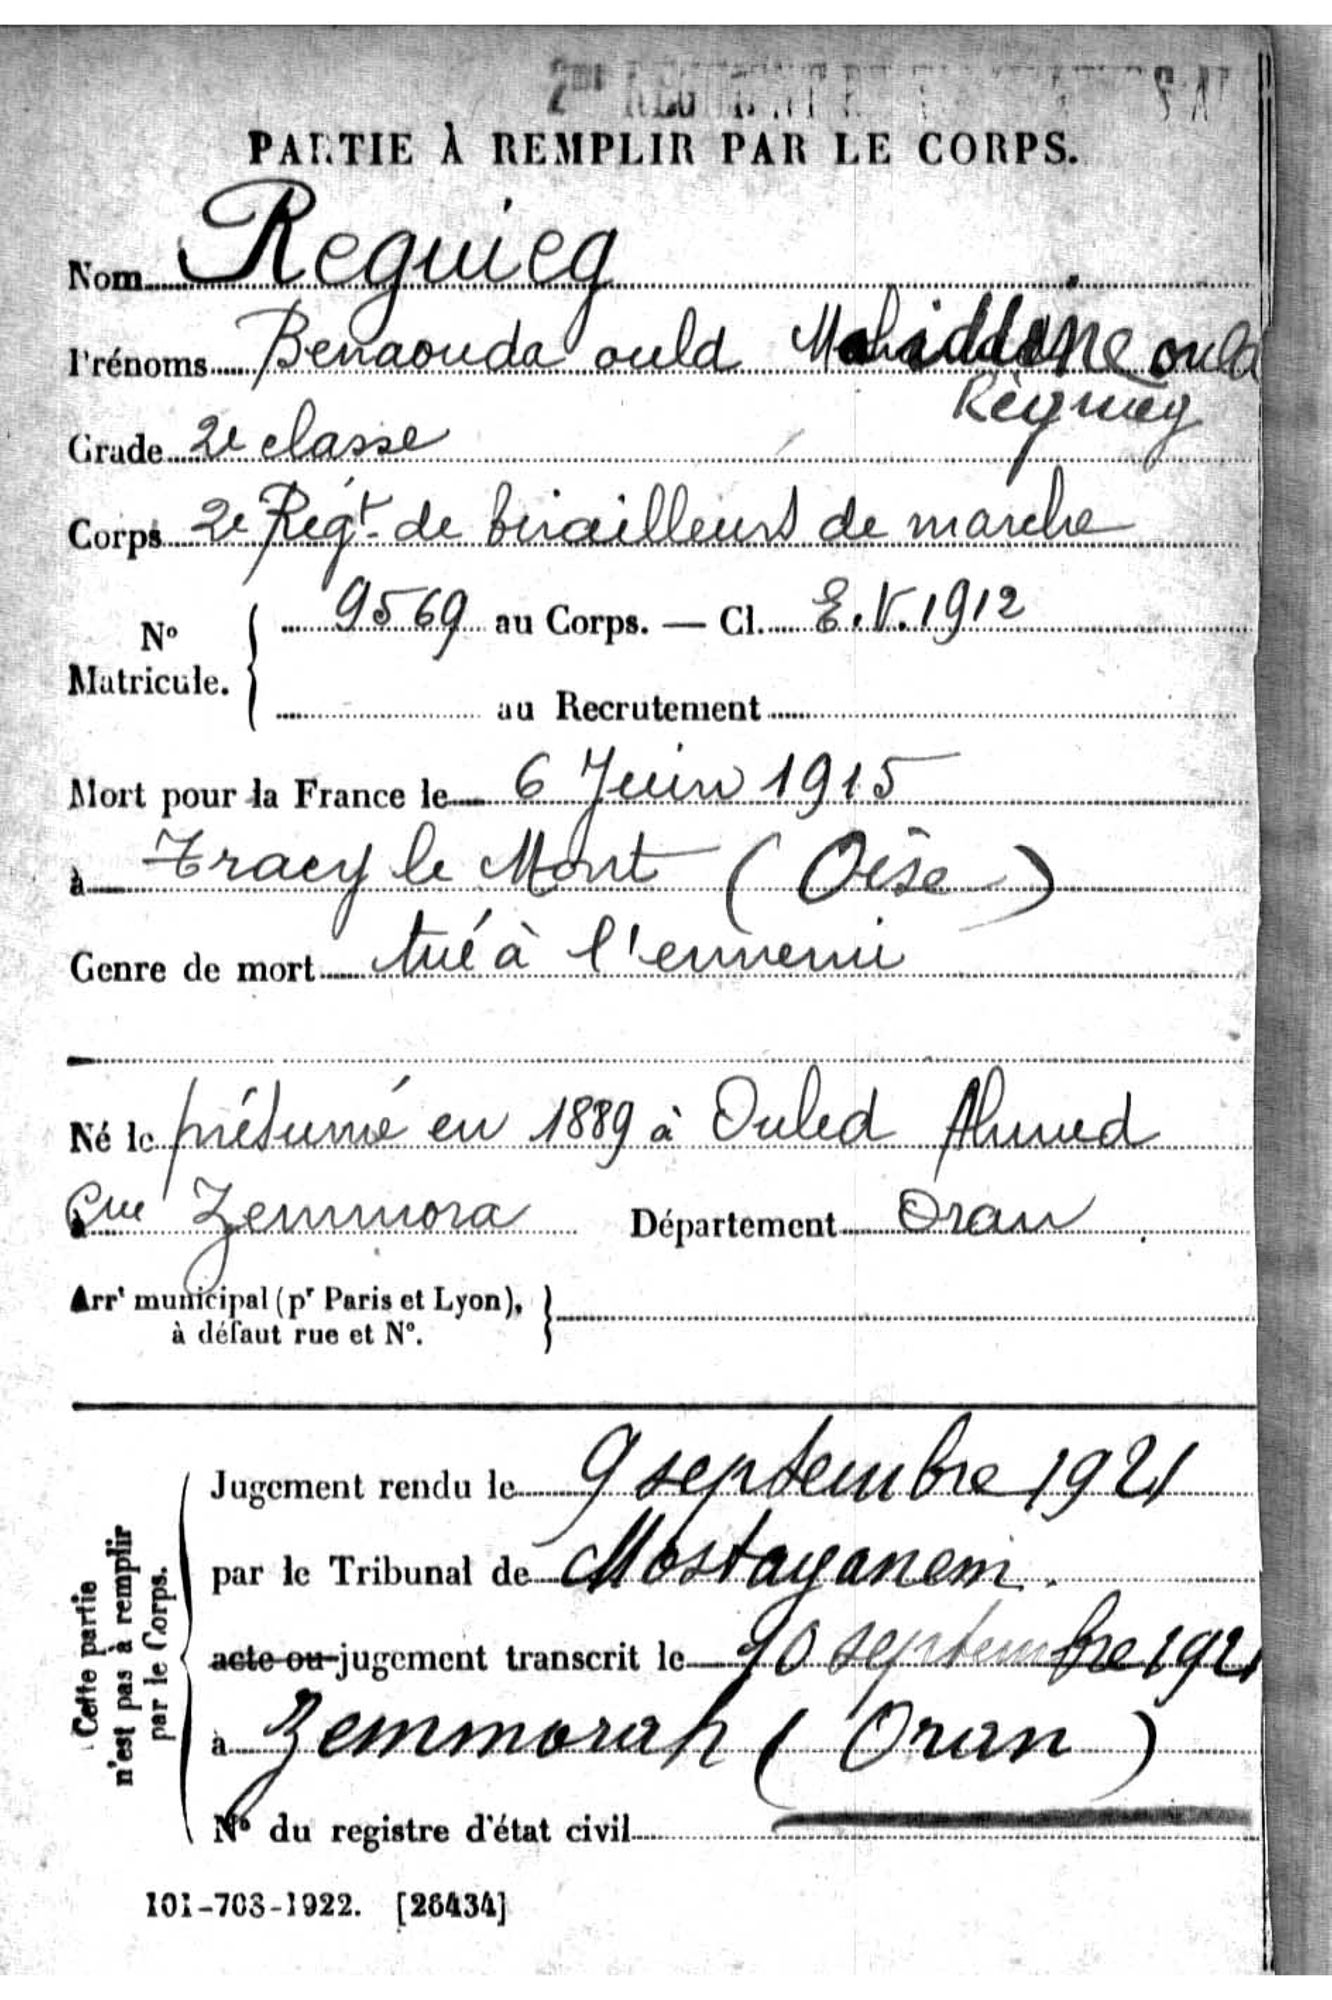 2me REGIMENT DE
PARTIE À REMPLIR PAR LE CORPS.
Nom Reguieg
Prénoms Benaouda ould Mahiddine ould
Règuieg
Grade 2e classe
Corps 2e Régt de tirailleurs de marche
N° Matricule. { 9569 au Corps. — Cl. E.V. 1912
au Recrutement
Mort pour la France le 6 Juin 1915
à Tracy le Mont (Oise)
Genre de mort tué à l'ennemi
Né le présumé en 1889 à Ouled Ahmed
à Cne Zemmora Département Oran
Arrt municipal (pr Paris et Lyon), }
à défaut rue et N°.
Cette partie
n'est pas à remplir
par le Corps.
Jugement rendu le 9 septembre 1921
par le Tribunal de Mostaganem.
acte ou jugement transcrit le 90 septembre 1921
à Zemmorah (Oran)
N° du registre d'état civil
101-708-1922. [26434]